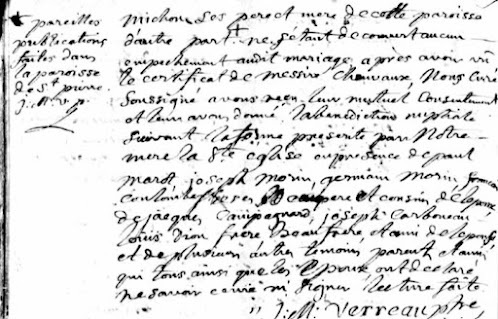 + pareilles
publications
faites dans
la paroisse
de St pierre
j. M. v. p.
michou ses pere et mere de cette paroisse
d'autre part + ne setant decouvert aucun
empechement audit mariage apres avoir vu
le certificat de messire Chauvaux, Nous Curé
Soussigné avons recu leur mutuel Consentement
et leur avons donné la benediction nuptiale
suivant la forme prescrite par Notre
mere la Ste eglise en presence de paul
marot, joseph morin, germain morin, francois
beaupere et cousin de lepoux
de jacques Campagnard, joseph Carboneau
Louis Dion frere Beaufrere et ami de lepouse
et de plusieurs autres temoins parents et amis
qui tous, ainsi que les Epoux ont declaré
ne savoir ecrire ni signer lecture faite
j. M. Verreau ptre